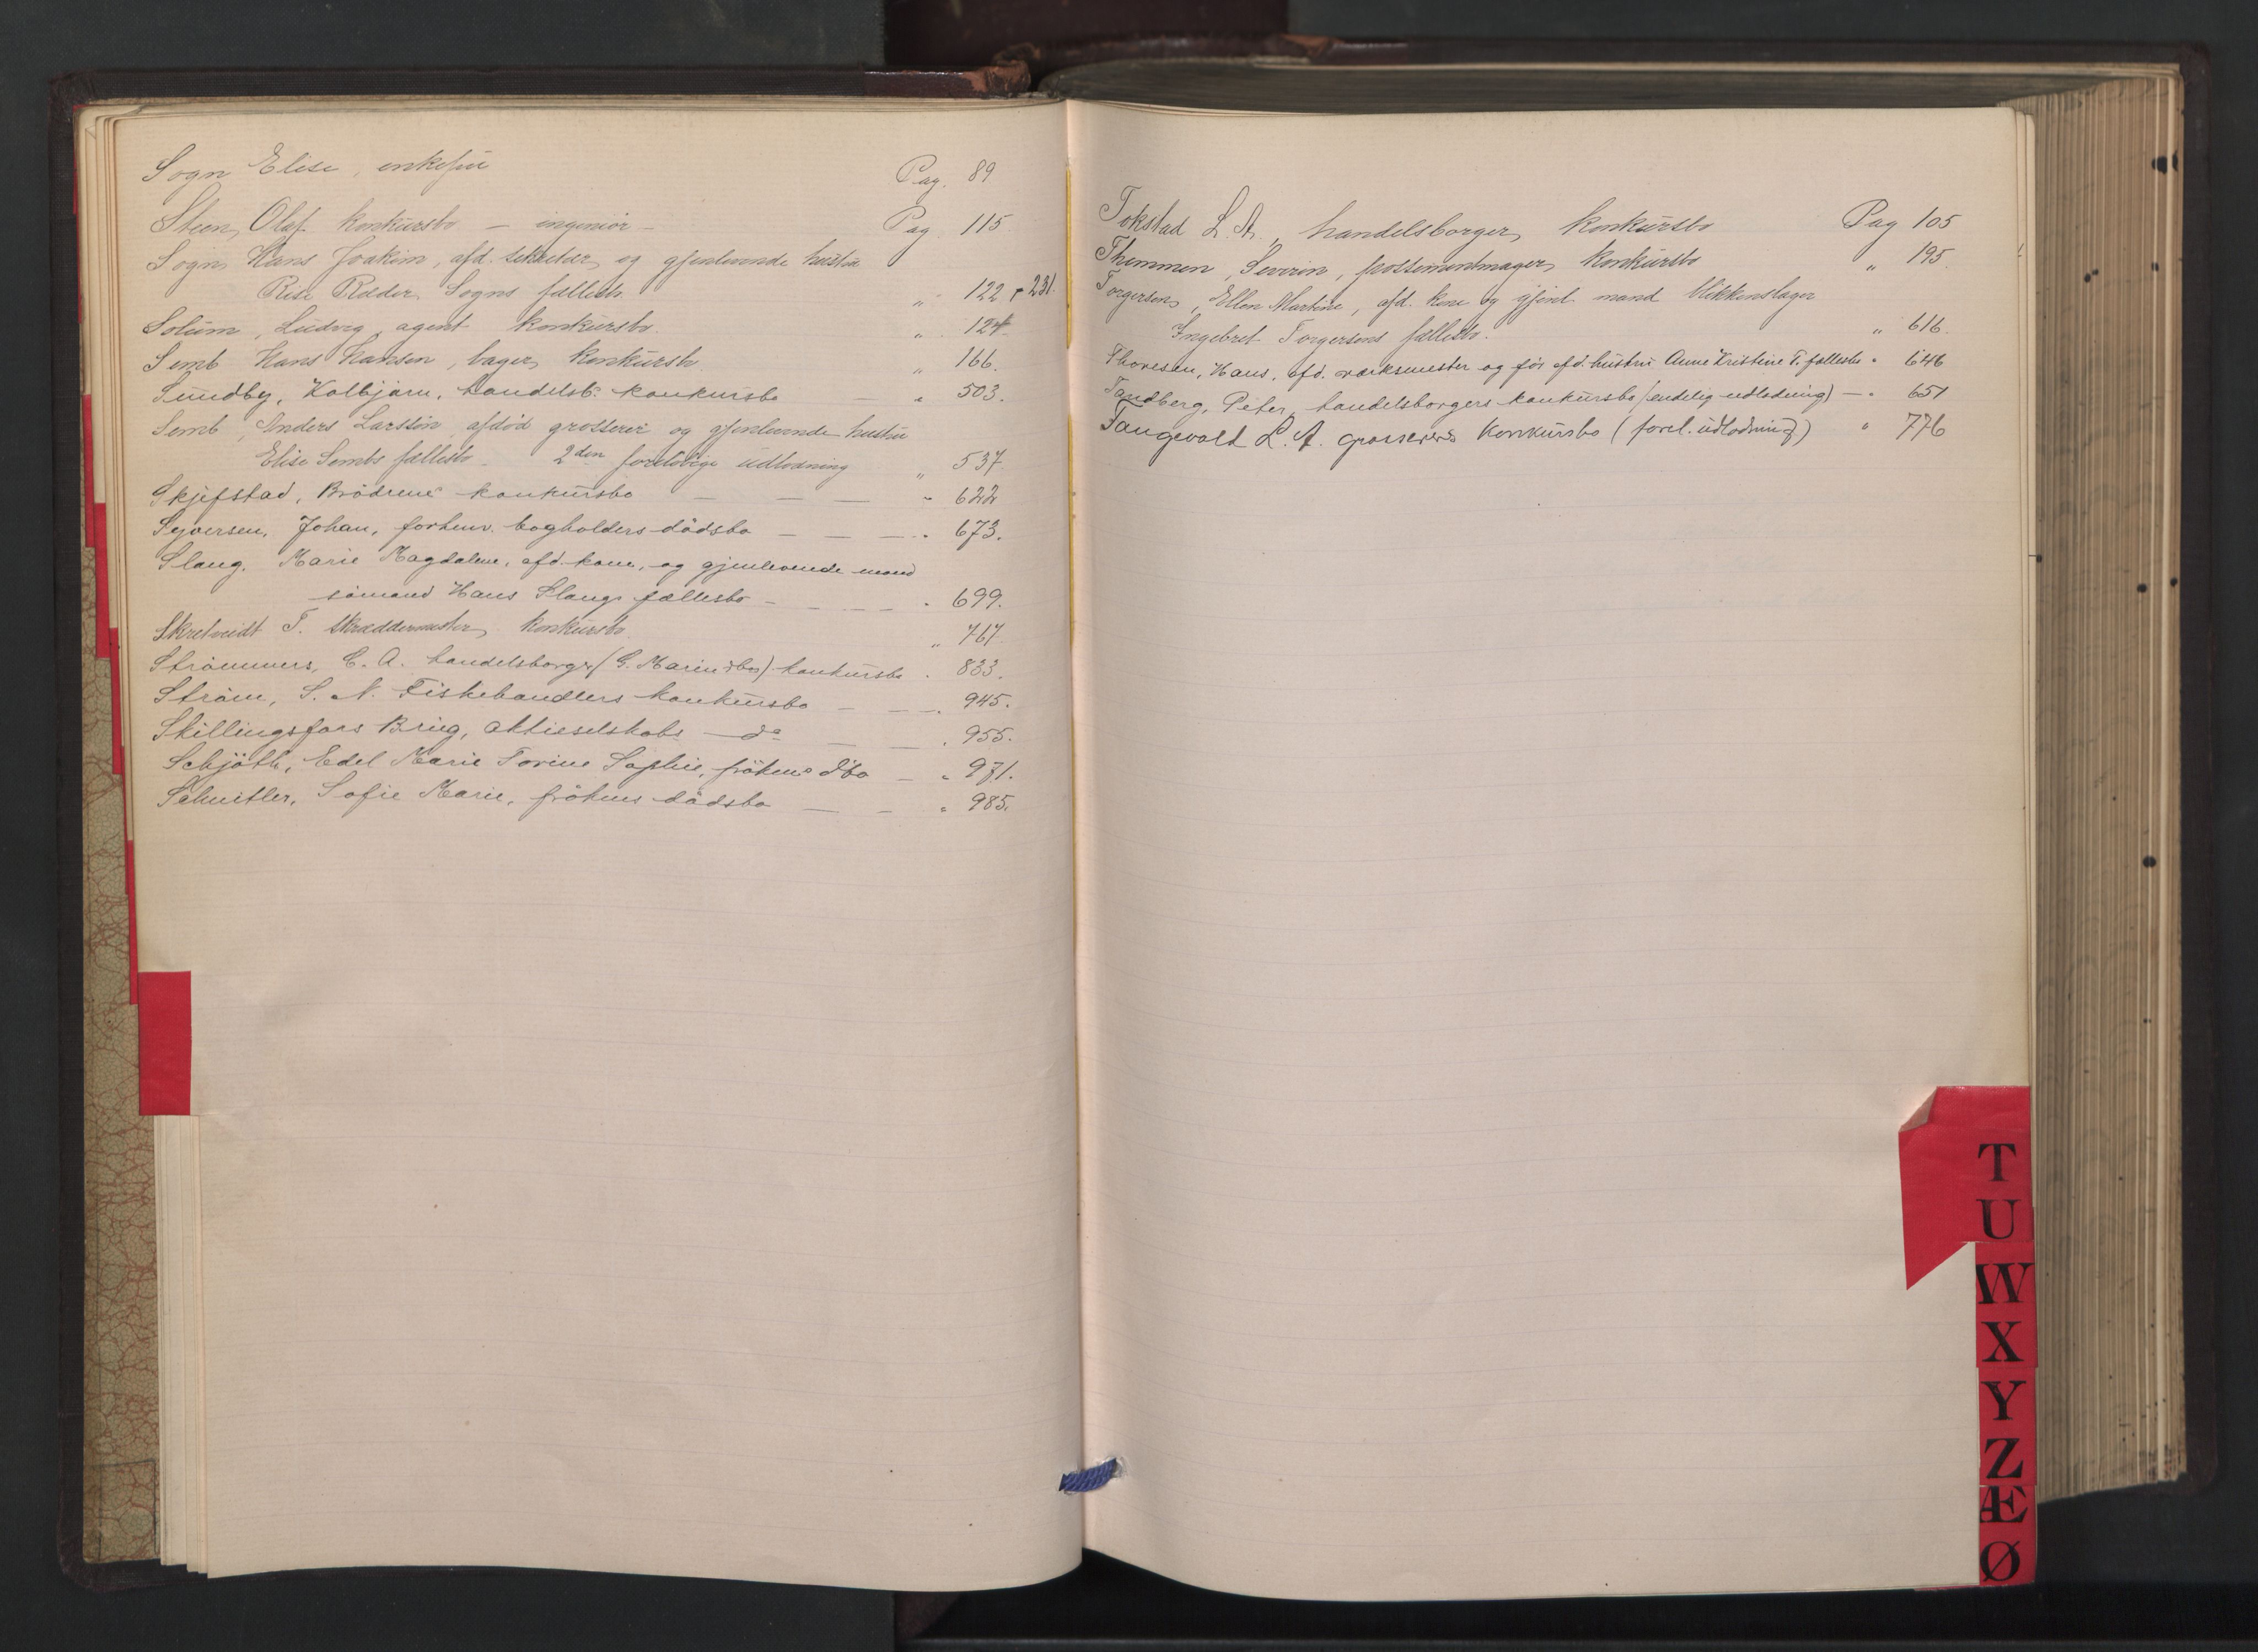 Sogn Elise, enkefru Pag. 89
Steen, Olaf konkursbo — ingeniør — Pag 115
Sogn, Hans Joakim, afd. sekretær, og gjenlevende hustru
Ræder Sogns fællesbo „ 122 + 231.
Solum, Ludvig, agent konkursbo „ 124
Semb Hans Hansen, bager, konkursbo „ 166.
Sundby, Kolbjørn, handelsb: konkursbo — „ 503.
Semb, Anders Larssøn, afdød grosserer og gjenlevende hustru
Elise Sembs fællesbo. 2den foreløbige udlodning „ 537
Skjefstad, Brödrene konkursbo — — — „ 622
Syversen, Johan, forhenv. bogholders dödsbo — — — „ 673.
Slang, Marie Magdalene, afd. kone, og gjenlevende mand
sömand Hans Slangs fællesbo — — — — „ 699.
Skretveidt T. skræddermester, konkursbo „ 767
Strömmers, C. A. handelsborger (G. Marin ) konkursbo „ 833.
Ström, S. N. Fiskehandlers konkursbo — — „ 945.
Skillingsfors Brug, aktieselskabs — do — — „ 955.
Schjöth, Edel Marie Torine Sophie, frökens d'bo — „ 971.
Schnitler, Sofie Marie, frökens dödsbo — — „ 985.
Tokstad L. A., handelsborger, konkursbo Pag 105
Thommen, Severin, possementmager, konkursbo „ 195
Torgersen, Ellen Martine, afd. kone og gjenl. mand blikkenslager
Ingebret Torgersens fællesbo. „ 616.
Thoresen, Hans, afd. værksmester og før afd. hustru Anne Kristine T. fællesbo „ 646
Tandberg, Peter, handelsborgers konkursbo (endelig udlodning) — „ 651
Tangevald L. A. grosserers konkursbo (forel. udlodning) „ 776
T
U
W
X
Y
Z
Æ
Ø